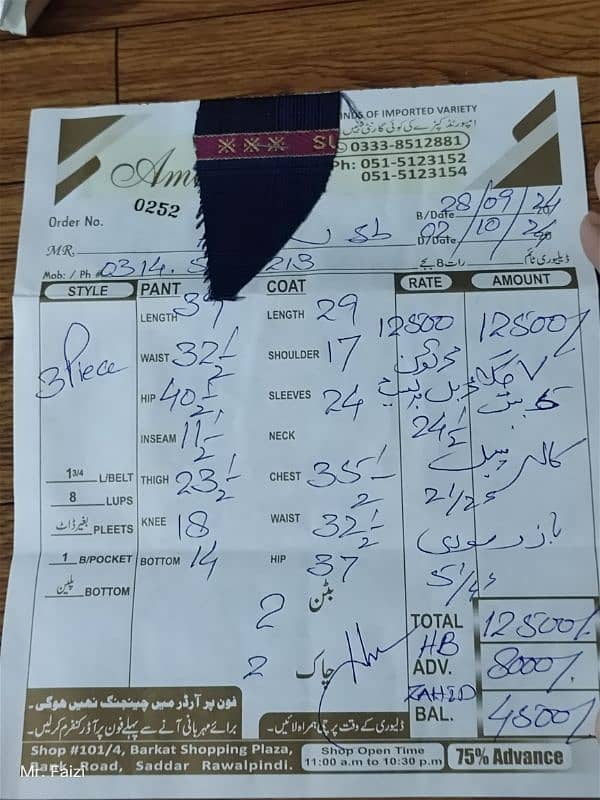 KINDS OF IMPORTED VARIETY
امپورٹڈ کپڑے کی کوئی گارنٹی نہیں
0333-8512881
Ph: 051-5123152
051-5123154
0252
Order No.
B/Date 28/09/24
D/Date 02/10/24
MR.
Mob: / Ph # 0314.
213
STYLE PANT COAT RATE AMOUNT
3 Piece
LENGTH 39 LENGTH 29 12500 12500/
WAIST 32 1/2 SHOULDER 17
HIP 40 1/2 SLEEVES 24
INSEAM 11 1/2 NECK 24 1/2
1 3/4 L/BELT THIGH 23 1/2 CHEST 35 1/2
8 LUPS
بغیر ڈاٹ PLEETS KNEE 18 WAIST 32 1/2
1 B/POCKET BOTTOM 14 HIP 37
پلین BOTTOM
2 بٹن
2 چاک
TOTAL 12500/
HB
ADV. 8000/
ZAHID
BAL. 4500/
فون پر آرڈر میں چینجنگ نھیں ھوگی۔
برائے مہربانی آنے سے پہلے فون پر آڈر کنفرم کرلیں۔
ڈلیوری کے وقت پرچی ہمراہ لائیں۔
Shop #101/4, Barkat Shopping Plaza,
Bank Road, Saddar Rawalpindi.
Shop Open Time
11:00 a.m to 10:30 p.m
75% Advance
Mr. Faizi